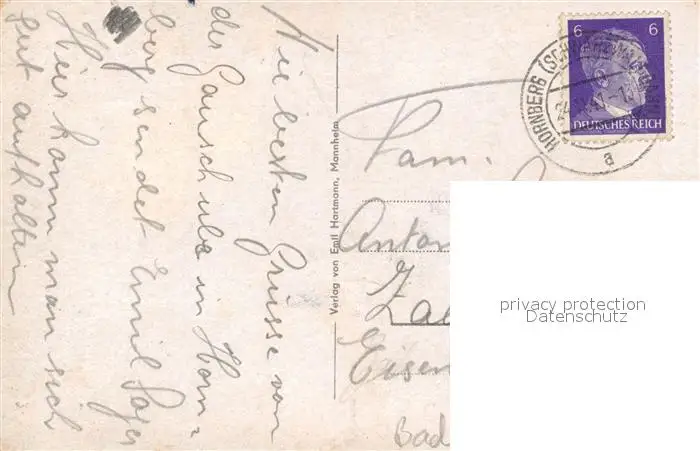 Die besten Grüsse von
der Gauschule in Horn=
berg sendet Emil
Hier kann man sich
gut aufhalten
Verlag von Emil Hartmann, Mannheim
6 6
DEUTSCHES REICH
HORNBERG (SCHWARZWALDBAHN)
a
Fam.
Anton
Eisen
Bad
privacy protection
Datenschutz